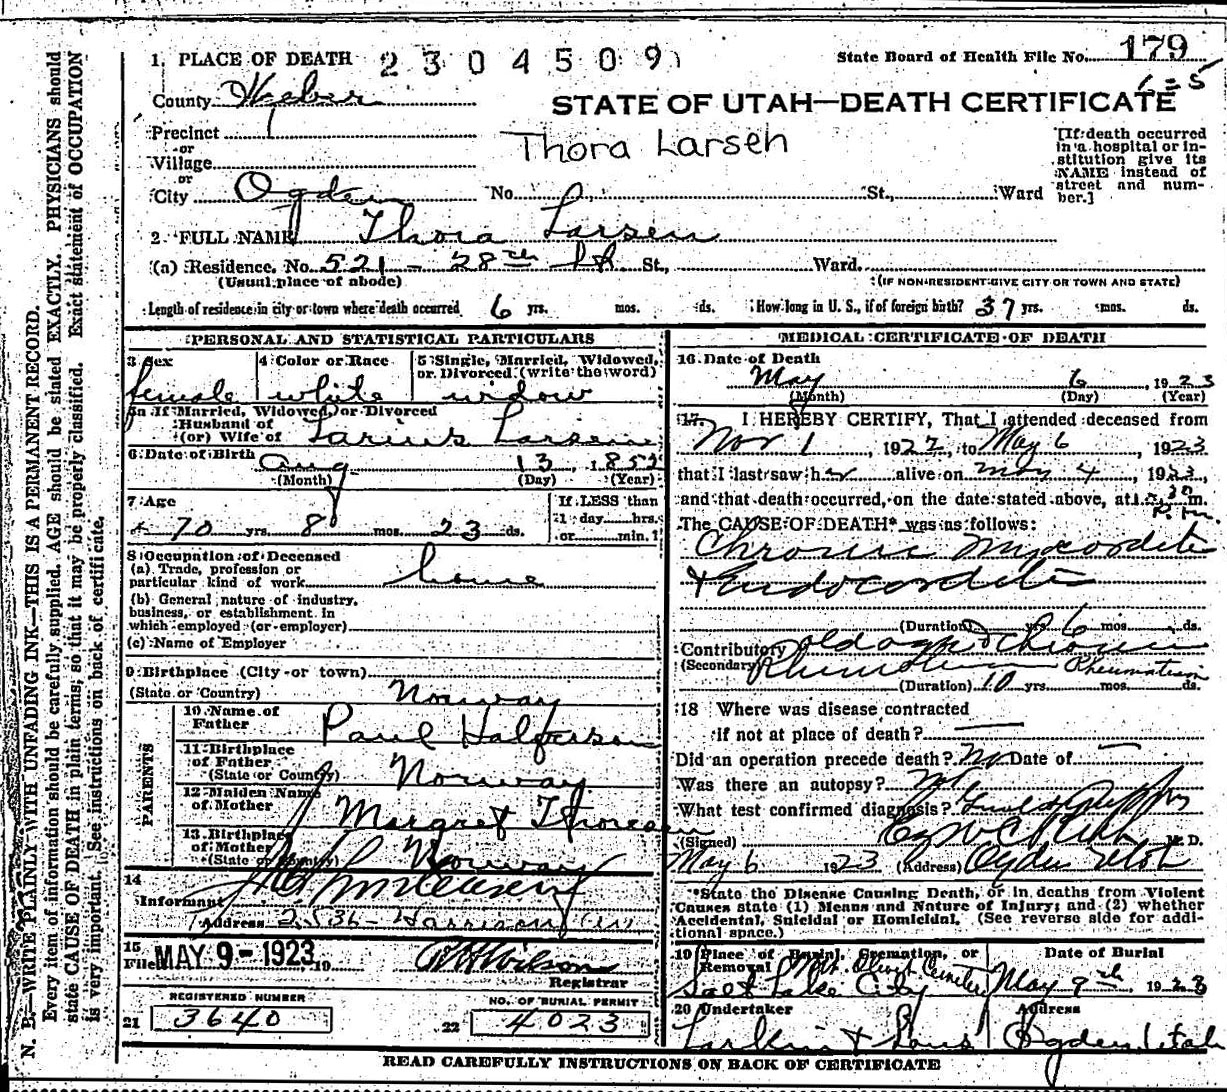 1. PLACE OF DEATH 2304509
State Board of Health File No. 179
County Weber
STATE OF UTAH—DEATH CERTIFICATE
Precinct 1
Thora Larsen
or
Village
or
City Ogden No. St., Ward
[If death occurred
in a hospital or in-
stitution give its
NAME instead of
street and num-
ber.]
2 FULL NAME Thora Larsen
(a) Residence. No. 521 - 28th St, Ward.
(Usual place of abode) (IF NON-RESIDENT GIVE CITY OR TOWN AND STATE)
Length of residence in city or town where death occurred 6 yrs. mos. ds. How long in U. S., if of foreign birth? 37 yrs. mos. ds.
PERSONAL AND STATISTICAL PARTICULARS
3 Sex 4 Color or Race 5 Single, Married, Widowed,
or Divorced (write the word)
female white widow
5a If Married, Widowed, or Divorced
Husband of
(or) Wife of Larius Larsen
6 Date of Birth Aug 13, 1852
(Month) (Day) (Year)
7 Age If LESS than
1 day hrs.
70 yrs 8 mos. 23 ds. or min.
8 Occupation of Deceased
(a) Trade, profession or
particular kind of work home
(b) General nature of industry,
business, or establishment in
which employed (or employer)
(c) Name of Employer
9 Birthplace (City or town)
(State or Country) Norway
PARENTS
10 Name of
Father Paul Halvarson
11 Birthplace
of Father
(State or Country) Norway
12 Maiden Name
of Mother Margret Thoresen
13 Birthplace
of Mother
(State or Country) Norway
14
Informant
Address 2536 - Harrison Ave
15
Filed MAY 9 - 1923, 19
Wilson
Registrar
REGISTERED NUMBER NO. OF BURIAL PERMIT
21 3640 22 4023
MEDICAL CERTIFICATE OF DEATH
16 Date of Death
May 6, 1923
(Month) (Day) (Year)
17 I HEREBY CERTIFY, That I attended deceased from
Nov 1, 1922, to May 6, 1923
that I last saw her alive on May 4, 1923,
and that death occurred, on the date stated above, at 1:30 m.
P.m.
The CAUSE OF DEATH* was as follows:
Chronic Myocordite
+ Endocordite
(Duration) yrs. 6 mos. ds.
Contributory old age & chronic
(Secondary) Rheumatism Rheumatism
(Duration) 10 yrs. mos. ds.
18 Where was disease contracted
if not at place of death?
Did an operation precede death? No Date of
Was there an autopsy? Not
What test confirmed diagnosis?
(Signed) M. D.
May 6 1923 (Address) Ogden Utah
*State the Disease Causing Death, or in deaths from Violent
Causes state (1) Means and Nature of Injury; and (2) whether
Accidental, Suicidal or Homicidal. (See reverse side for addi-
tional space.)
19 Place of Burial, Cremation, or Date of Burial
Removal Mt. Olivet Cemetery
Salt Lake City May 9th 1923
20 Undertaker Address
Larkin & Sons Ogden Utah
READ CAREFULLY INSTRUCTIONS ON BACK OF CERTIFICATE
N. B.—WRITE PLAINLY WITH UNFADING INK—THIS IS A PERMANENT RECORD.
Every item of information should be carefully supplied. AGE should be stated EXACTLY. PHYSICIANS should
state CAUSE OF DEATH in plain terms; so that it may be properly classified. Exact statement of OCCUPATION
is very important. See instructions on back of certificate.